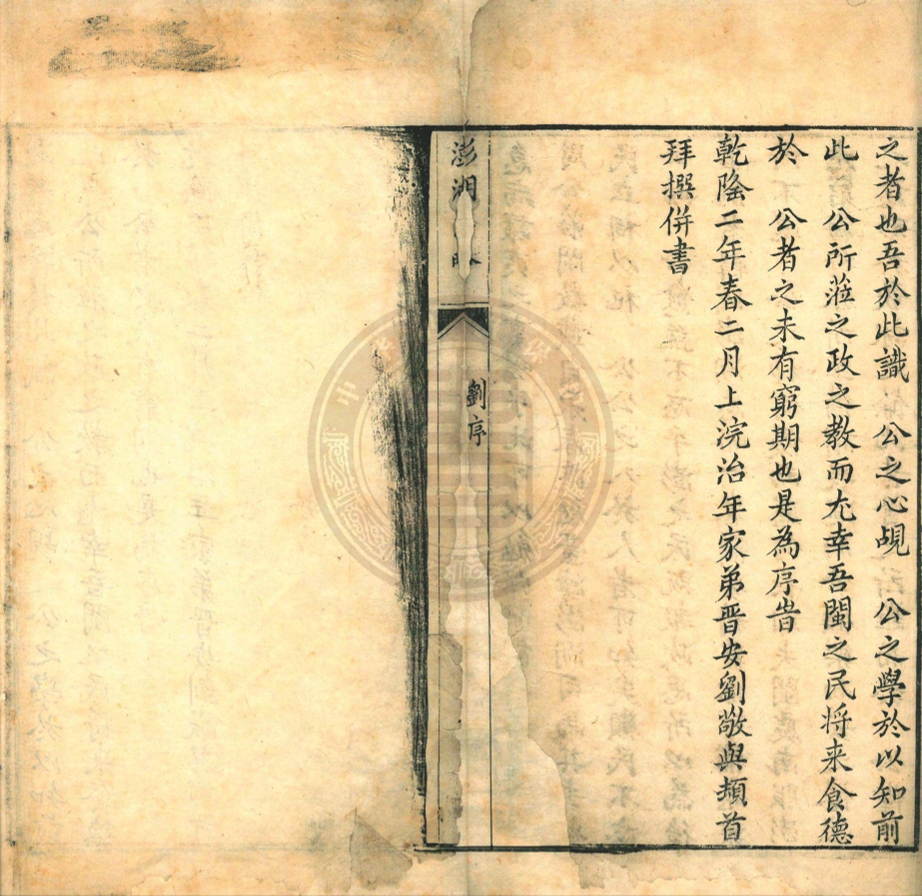 之者也吾於此識　公之心覘　公之學於以知前
此　公所蒞之政之教而尤幸吾閩之民将来食德
於　公者之未有窮期也是為序旹
乾隆二年春二月上浣治年家弟晋安劉敬與頓首
拜撰併書
澎湖
劉序